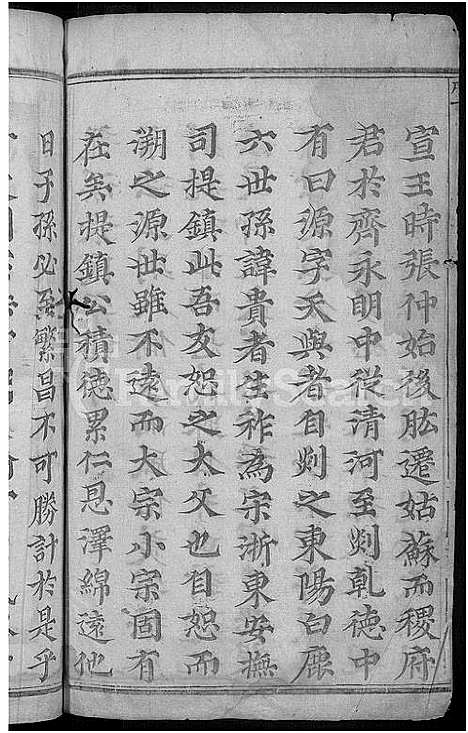 宣王時張仲始後肱遷姑蘇而稷府
君於齊永明中從清河至剡乾德中
有曰源字天與者自剡之東陽白鹿
六世孫諱貴者生祚為宗浙東安撫
司提鎮此吾友恕之大父也自恕而
溯之源世雖不遠而大宗小宗固有
在矣提鎮公積德累仁恩澤綿遠他
日子孫必至繁昌不可勝計於是乎
FamilySearch